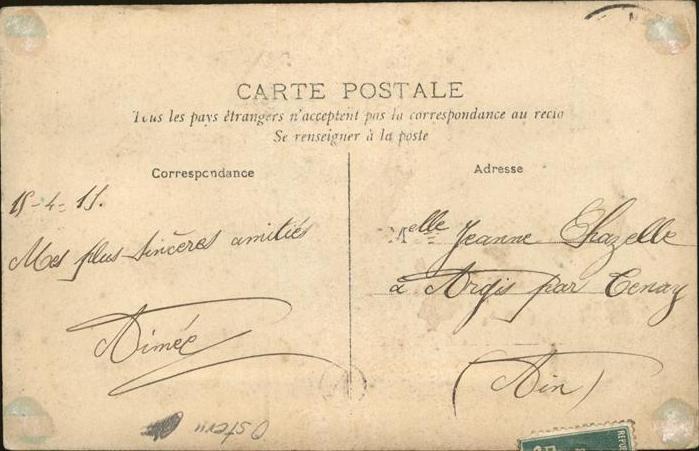 CARTE POSTALE
Tous les pays étrangers n'acceptent pas la correspondance au recto
Se renseigner à la poste
Correspondance
Adresse
15-4-11.
Mes plus sincères amitiés
Aimée
Melle Jeanne Chazelle
à Argis par Tenay
(Ain)